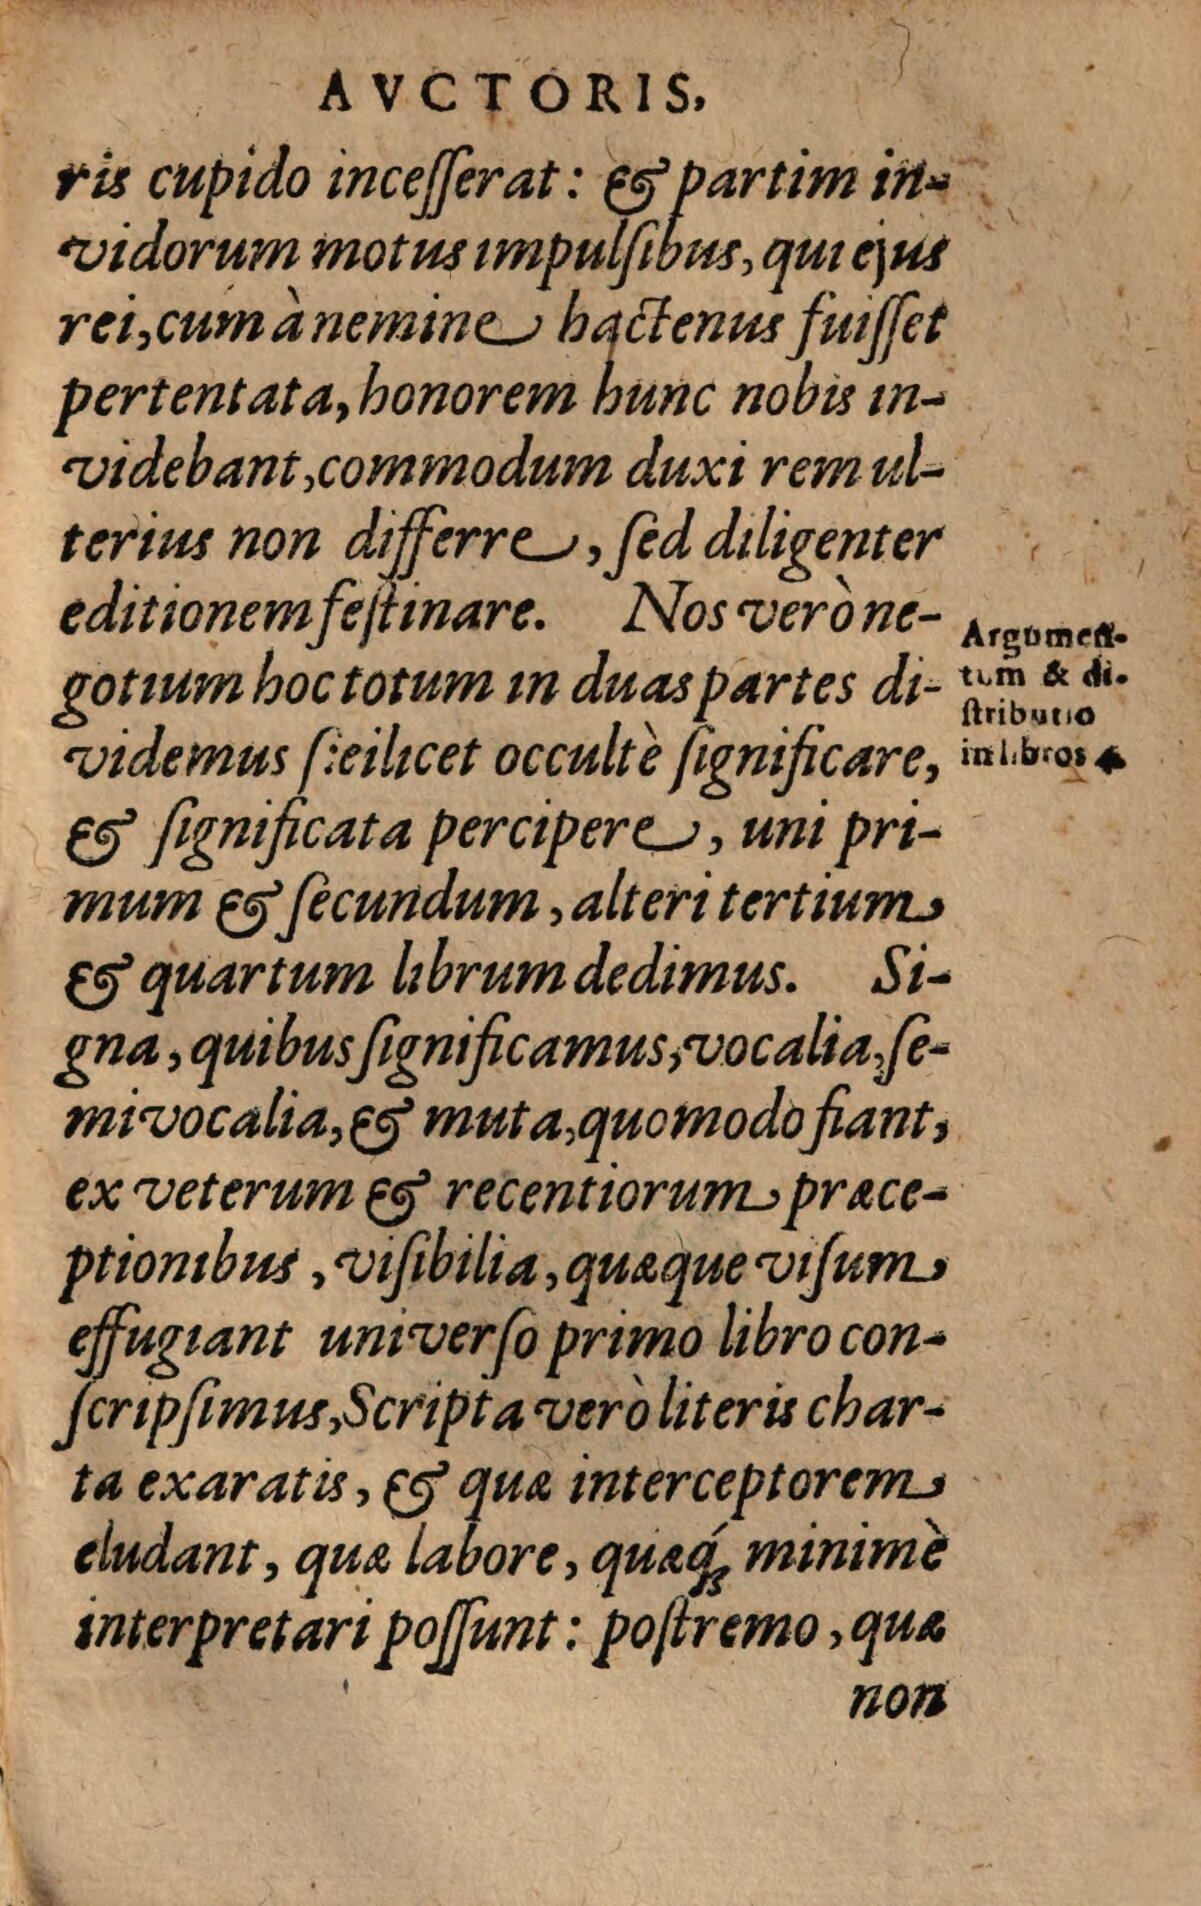 AVCTORIS.
ris cupido inceſſerat: & partim in-
vidorum motus impulſibus, qui ejus
rei, cum à nemine hactenus fuiſſet
pertentata, honorem hunc nobis in-
videbant, commodum duxi rem ul-
terius non differre, ſed diligenter
editionem feſtinare. Nos verò ne-
gotium hoc totum in duas partes di-
videmus ſ:eilicet occultè ſignificare,
& ſignificata percipere, uni pri-
mum & ſecundum, alteri tertium
& quartum librum dedimus. Si-
gna, quibus ſignificamus, vocalia, ſe-
mivocalia, & muta, quomodo fiant,
ex veterum & recentiorum præce-
ptionibus, viſibilia, quæque viſum
effugiant univerſo primo libro con-
ſcripſimus, Scripta verò literis char-
ta exaratis, & quæ interceptorem
eludant, quæ labore, quæq́; minimè
interpretari poſſunt: poſtremo, quæ
non
Argumen-
tum & di-
ſtributio
in libros